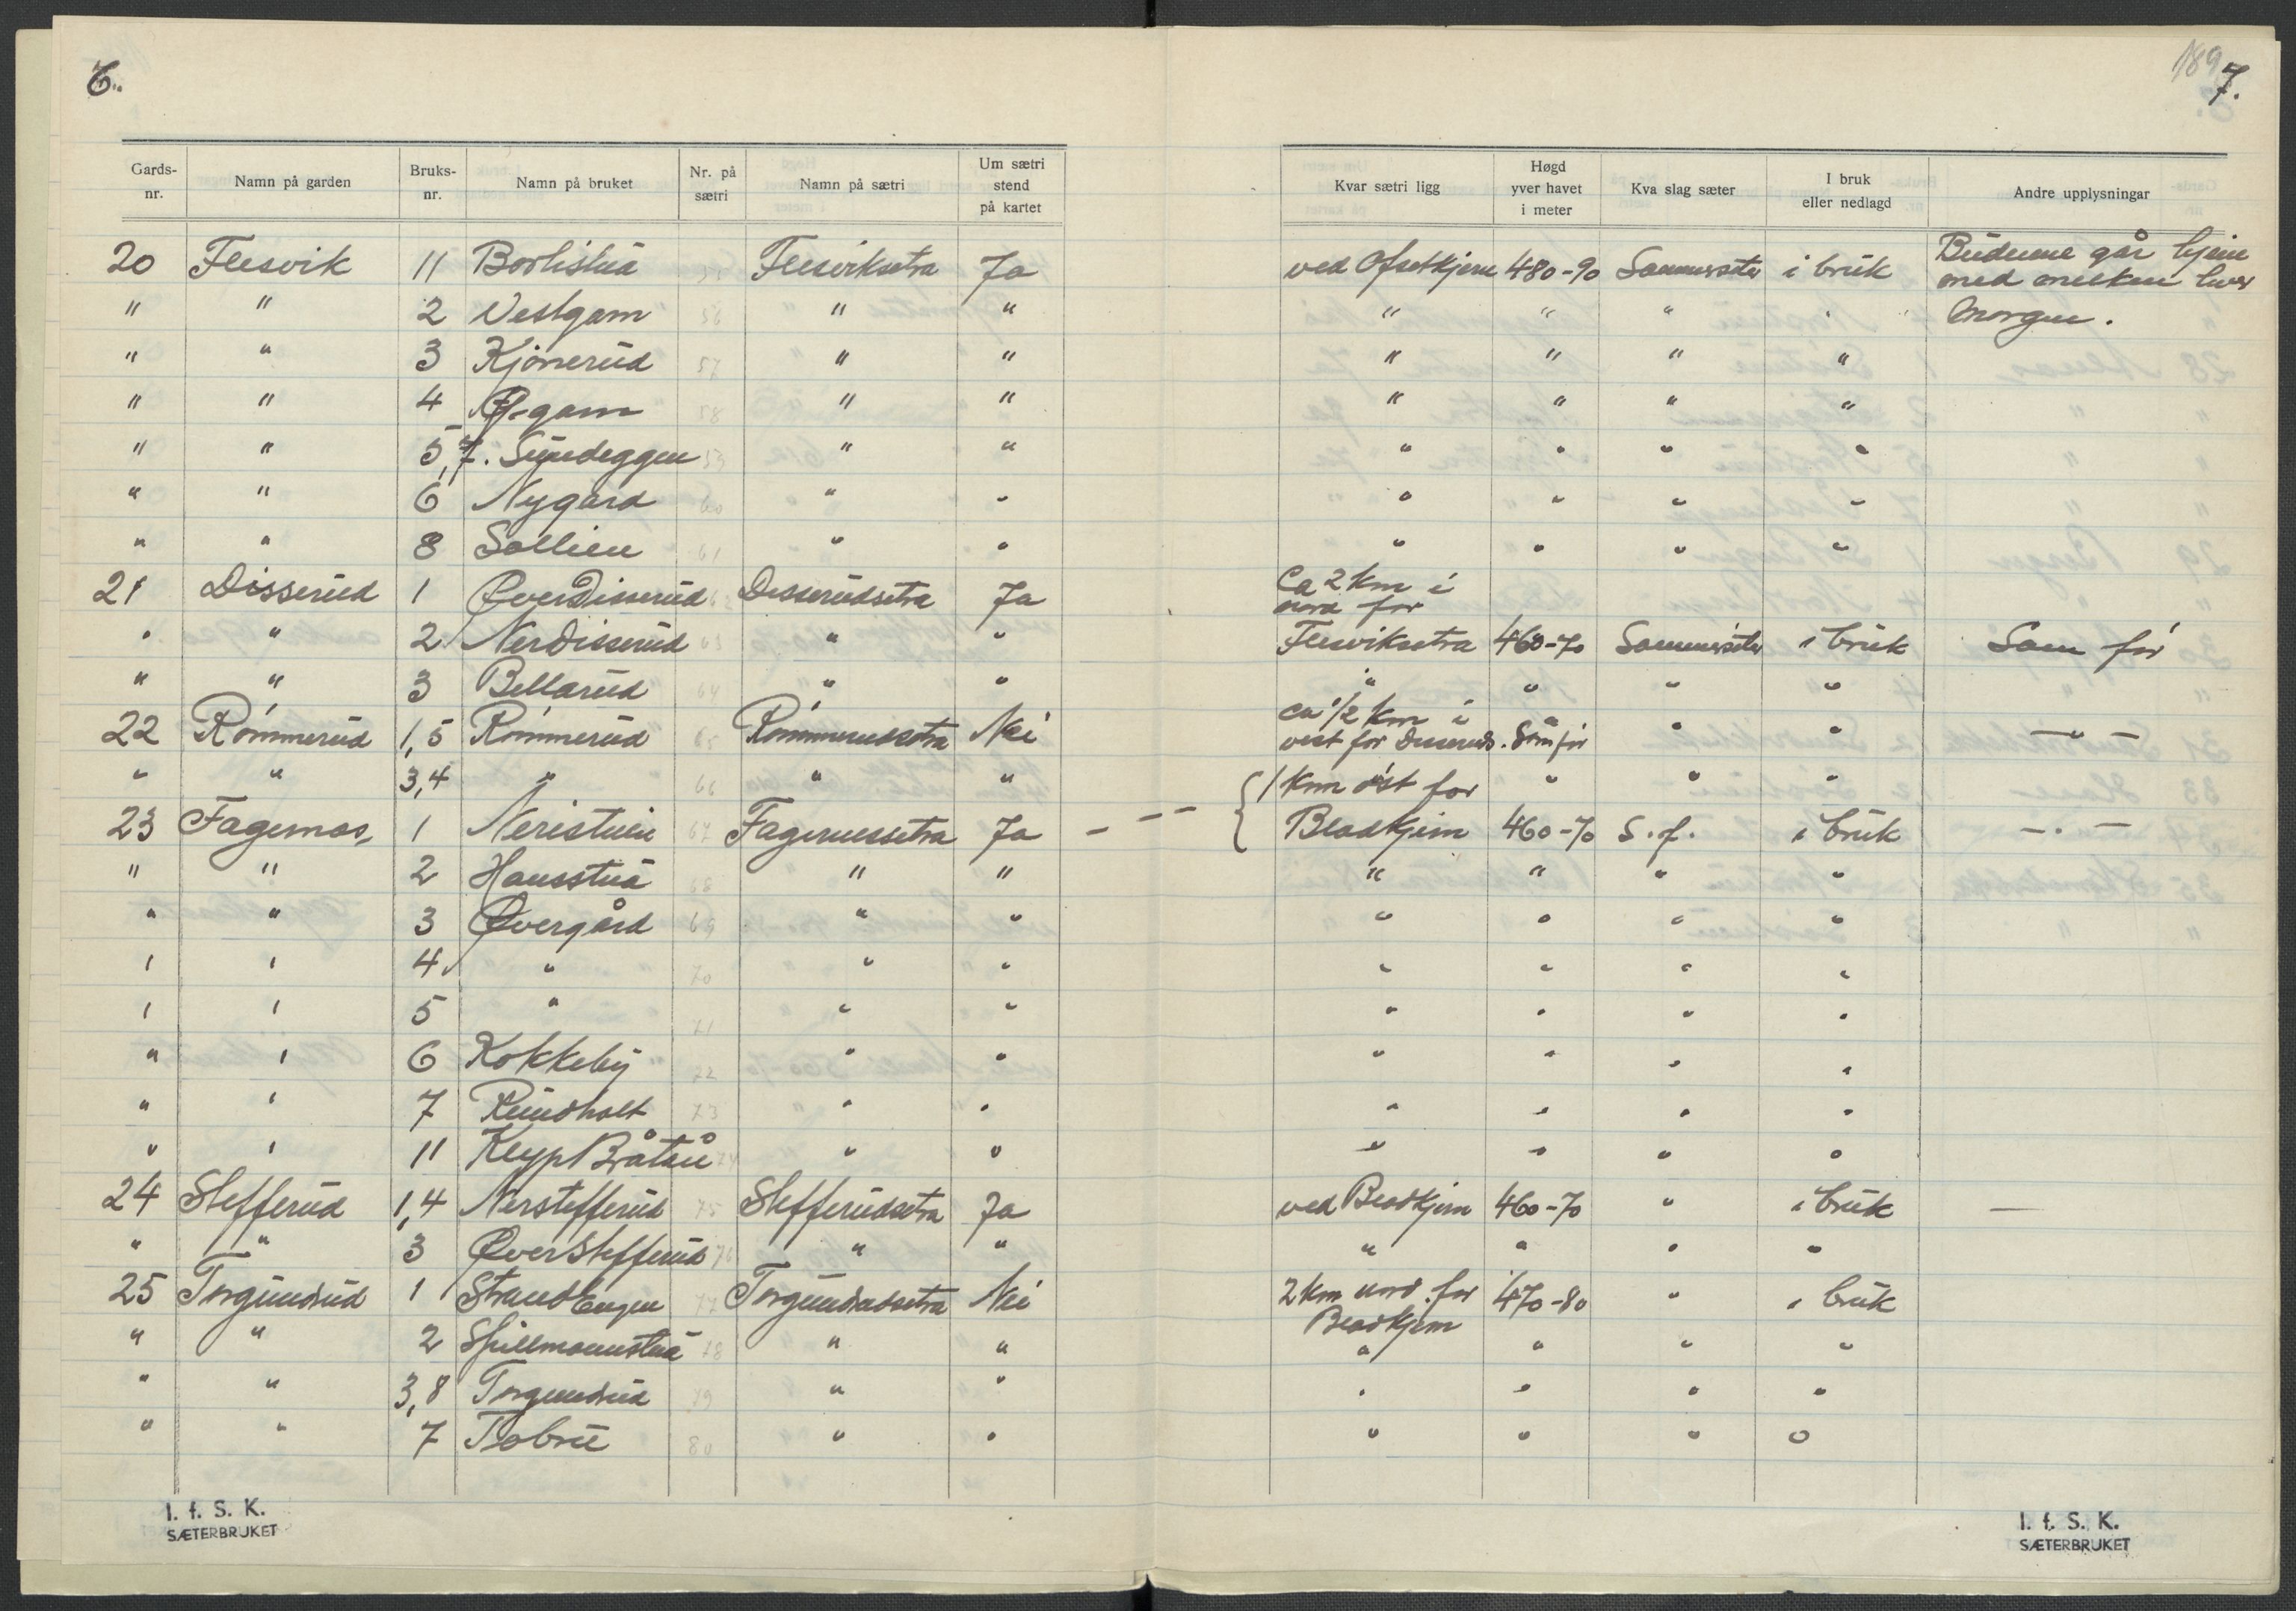 6.
Gards-nr. Namn på garden Bruks-nr. Namn på bruket Nr. på sætri Namn på sætri Um sætri stend på kartet
20 Flesvik 11 Borlistua Flesviksetra Ja
" " 2 Vestgam 56 " "
" " 3 Kjønerud 57 " "
" " 4 Ø-gam 58 " "
" " 5,7. Sundeggen 59 " "
" " 6 Nygård 60 " "
" " 8 Sollien 61 " "
21 Disserud 1 Øverdisserud Disserudsetra Ja
" " 2 Nerdisserud 63 " "
" " 3 Bellarud 64 " "
22 Rømmerud 1,5 Rømmerud 65 Rømmerudsetra Nei
" " 3,4 " 66 " "
23 Fagernes, 1 Neristuen 67 Fagernessetra Ja
" " 2 Hansstua 68 " "
" " 3 Øvergård 69 " "
" " 4 " 70 " "
" " 5 " 71 " "
" " 6 Kokkeby 72 " "
" " 7 Rundholt 73 " "
" " 11 Bråtån 74 " "
24 Stefferud 1,4 Nerstefferud 75 Stefferudsetra Ja
" " 3 Øverstefferud 76 " "
25 Torgundrud 1 Strandengen 77 Torgundrudsetra Nei
" " 2 Spillmannstua 78 " "
" " 3,8 Torgundrud 79 " "
" " 7 80 " "
I. f. S. K.
SÆTERBRUKET
189
7.
Kvar sætri ligg Høgd yver havet i meter Kva slag sæter I bruk eller nedlagd Andre upplysningar
ved Ofsetkjern 480-90 Sommerseter i bruk Budeiene går hjem
med melken hver
" " " " morgen.
" " " "
" " " "
" " " "
" " " "
" " " "
Ca 2 km i
nord for
Flesviksetra 460-70 Sommerseter i bruk Som før
" " " "
ca 1/2 km i
vest for Disseruds. Som før " " — " —
1 km øst for " " "
Bladkjern 460-70 S.f. i bruk — " —
" " " "
" " " "
" " " "
" " " "
" " " "
" " " "
" " " "
ved Bladkjern 460-70 " i bruk —
" " " "
2 km nord for 470-80 " i bruk
Bladkjern
" " " "
" " " "
" " " "
I. f. S. K.
SÆTERBRUKET